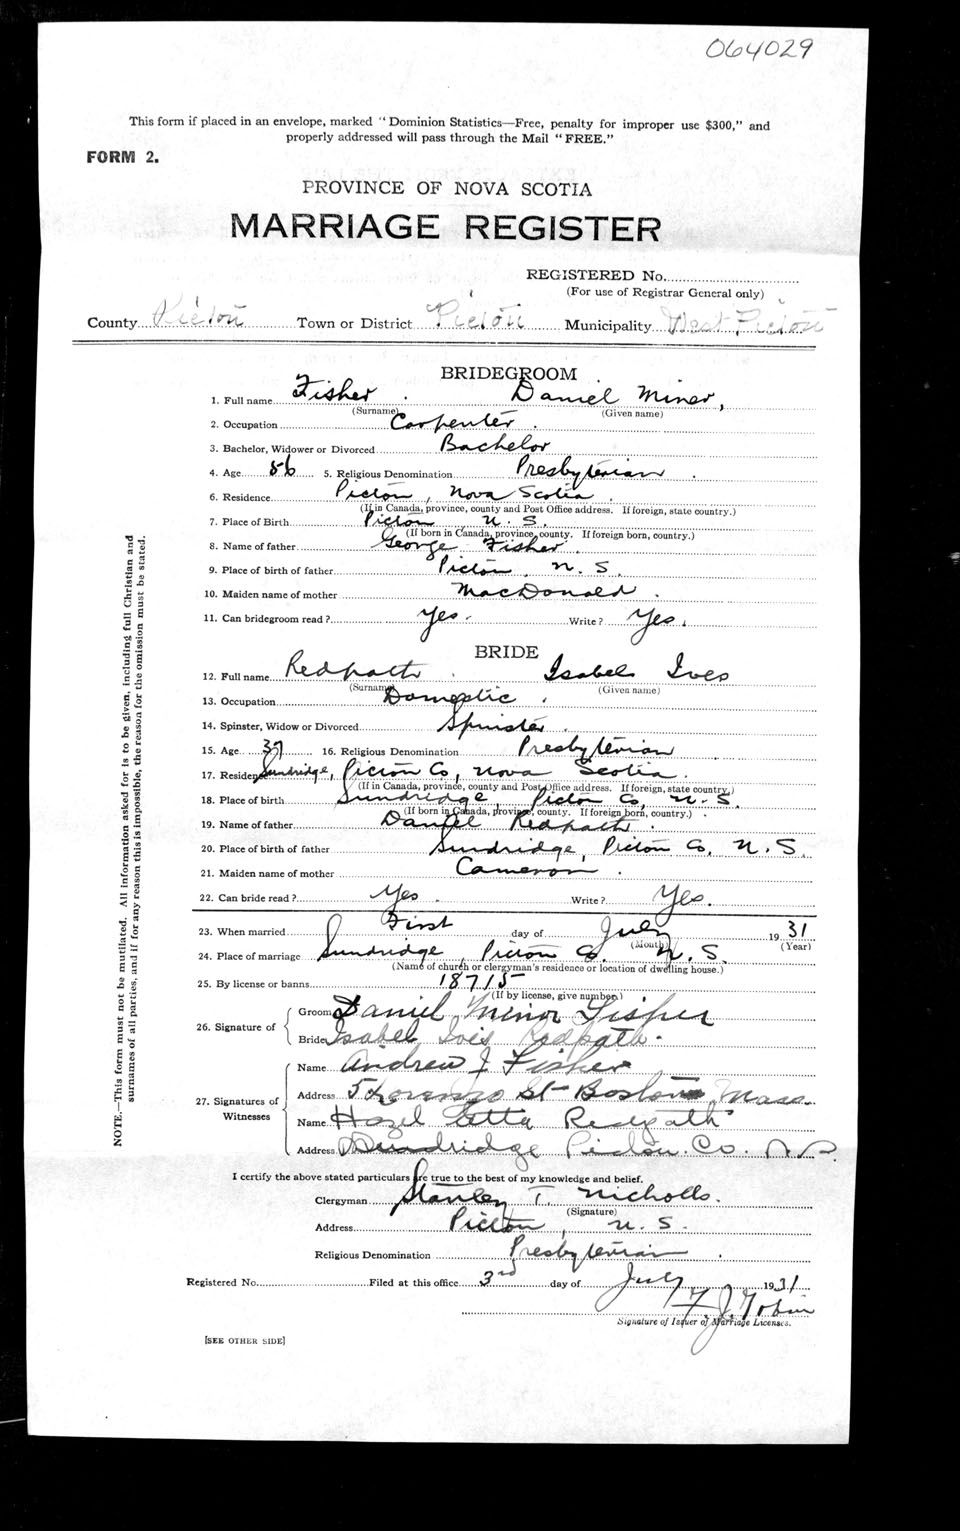 064029
This form if placed in an envelope, marked "Dominion Statistics—Free, penalty for improper use $300," and
properly addressed will pass through the Mail "FREE."
FORM 2.
PROVINCE OF NOVA SCOTIA
MARRIAGE REGISTER
REGISTERED No.
(For use of Registrar General only)
County Pictou Town or District Pictou Municipality West Pictou
BRIDEGROOM
1. Full name Fisher . Daniel Miner,
(Surname) (Given name)
2. Occupation Carpenter .
3. Bachelor, Widower or Divorced Bachelor
4. Age 56 5. Religious Denomination Presbyterian .
6. Residence Pictou, Nova Scotia .
(If in Canada, province, county and Post Office address. If foreign, state country.)
7. Place of Birth Pictou, N. S.
(If born in Canada, province, county. If foreign born, country.)
8. Name of father George Fisher.
9. Place of birth of father Pictou, N. S.
10. Maiden name of mother MacDonald .
11. Can bridegroom read? Yes. Write? Yes.
BRIDE
12. Full name Redpath . Isabel Ives
(Surname) (Given name)
13. Occupation Domestic .
14. Spinster, Widow or Divorced Spinster .
15. Age 37 16. Religious Denomination Presbyterian
17. Residence Sundridge, Pictou Co, Nova Scotia .
(If in Canada, province, county and Post Office address. If foreign, state country.)
18. Place of birth Sundridge, Pictou Co, N. S.
(If born in Canada, province, county. If foreign born, country.)
19. Name of father Daniel Redpath .
20. Place of birth of father Sundridge, Pictou Co, N. S.
21. Maiden name of mother Cameron .
22. Can bride read? Yes . Write? Yes.
23. When married First day of July 1931
(Month) (Year)
24. Place of marriage Sundridge, Pictou Co. N. S.
(Name of church or clergyman's residence or location of dwelling house.)
25. By license or banns 18715
(If by license, give number.)
26. Signature of Groom Daniel Minor Fisher
Bride Isabel Ives Redpath.
27. Signatures of Witnesses Name Andrew J Fisher
Address 5 St Boston Mass.
Name Hazel Etta Redpath
Address Sundridge Pictou. Co. N.S.
I certify the above stated particulars are true to the best of my knowledge and belief.
Clergyman Stanley T. Nicholls.
(Signature)
Address Pictou, N. S.
Religious Denomination Presbyterian .
Registered No. Filed at this office 3rd day of July 1931
F. J. Tobin
Signature of Issuer of Marriage Licenses.
[SEE OTHER SIDE]
NOTE.—This form must not be mutilated. All information asked for is to be given, including full Christian and
surnames of all parties, and if for any reason this is impossible, the reason for the omission must be stated.